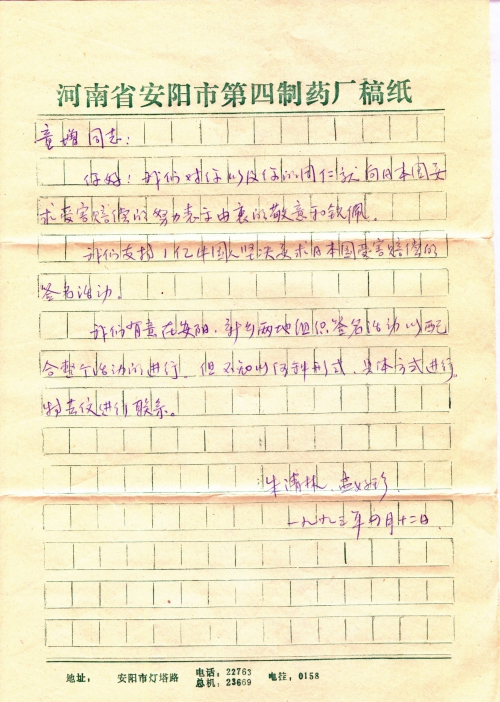 河南省安阳市第四制药厂稿纸
童增同志：
你好！我们对你以及你的同仁就向日本国要
求受害赔偿的努力表示由衷的敬意和钦佩。
我们支持1亿中国人坚决要求日本国受害赔偿的
签名活动。
我们有意在安阳、新乡两地组织签名活动以配
合整个活动的进行，但不知以何种形式、具体方式进行，
特去仪进行联系。
朱清林、
一九九三年四月十二日。
地址： 安阳市灯塔路 电话：22763 电挂：0158
总机：23669